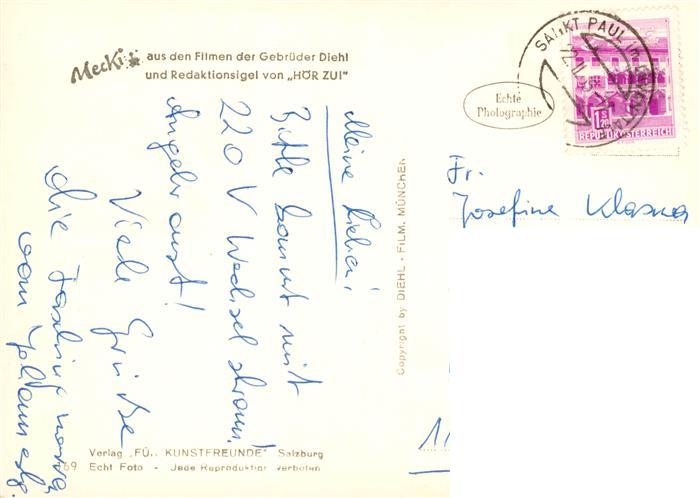 Mecki
aus den Filmen der Gebrüder Diehl
und Redaktionsigel von „HÖR ZU!"
Echte
Photographie
SANKT PAUL im
1 S 20
REPUBLIK ÖSTERREICH
Meine Lieben!
Bitte kommt mit
220 V Wechselstrom!
Angebraust!
Viele Grüße
die
vom
Copyright by DIEHL - FILM, MÜNCHEN
Fr.
Josefine
11
Verlag „FÜR KUNSTFREUNDE" Salzburg
169 Echt Foto - Jede Reproduktion verboten